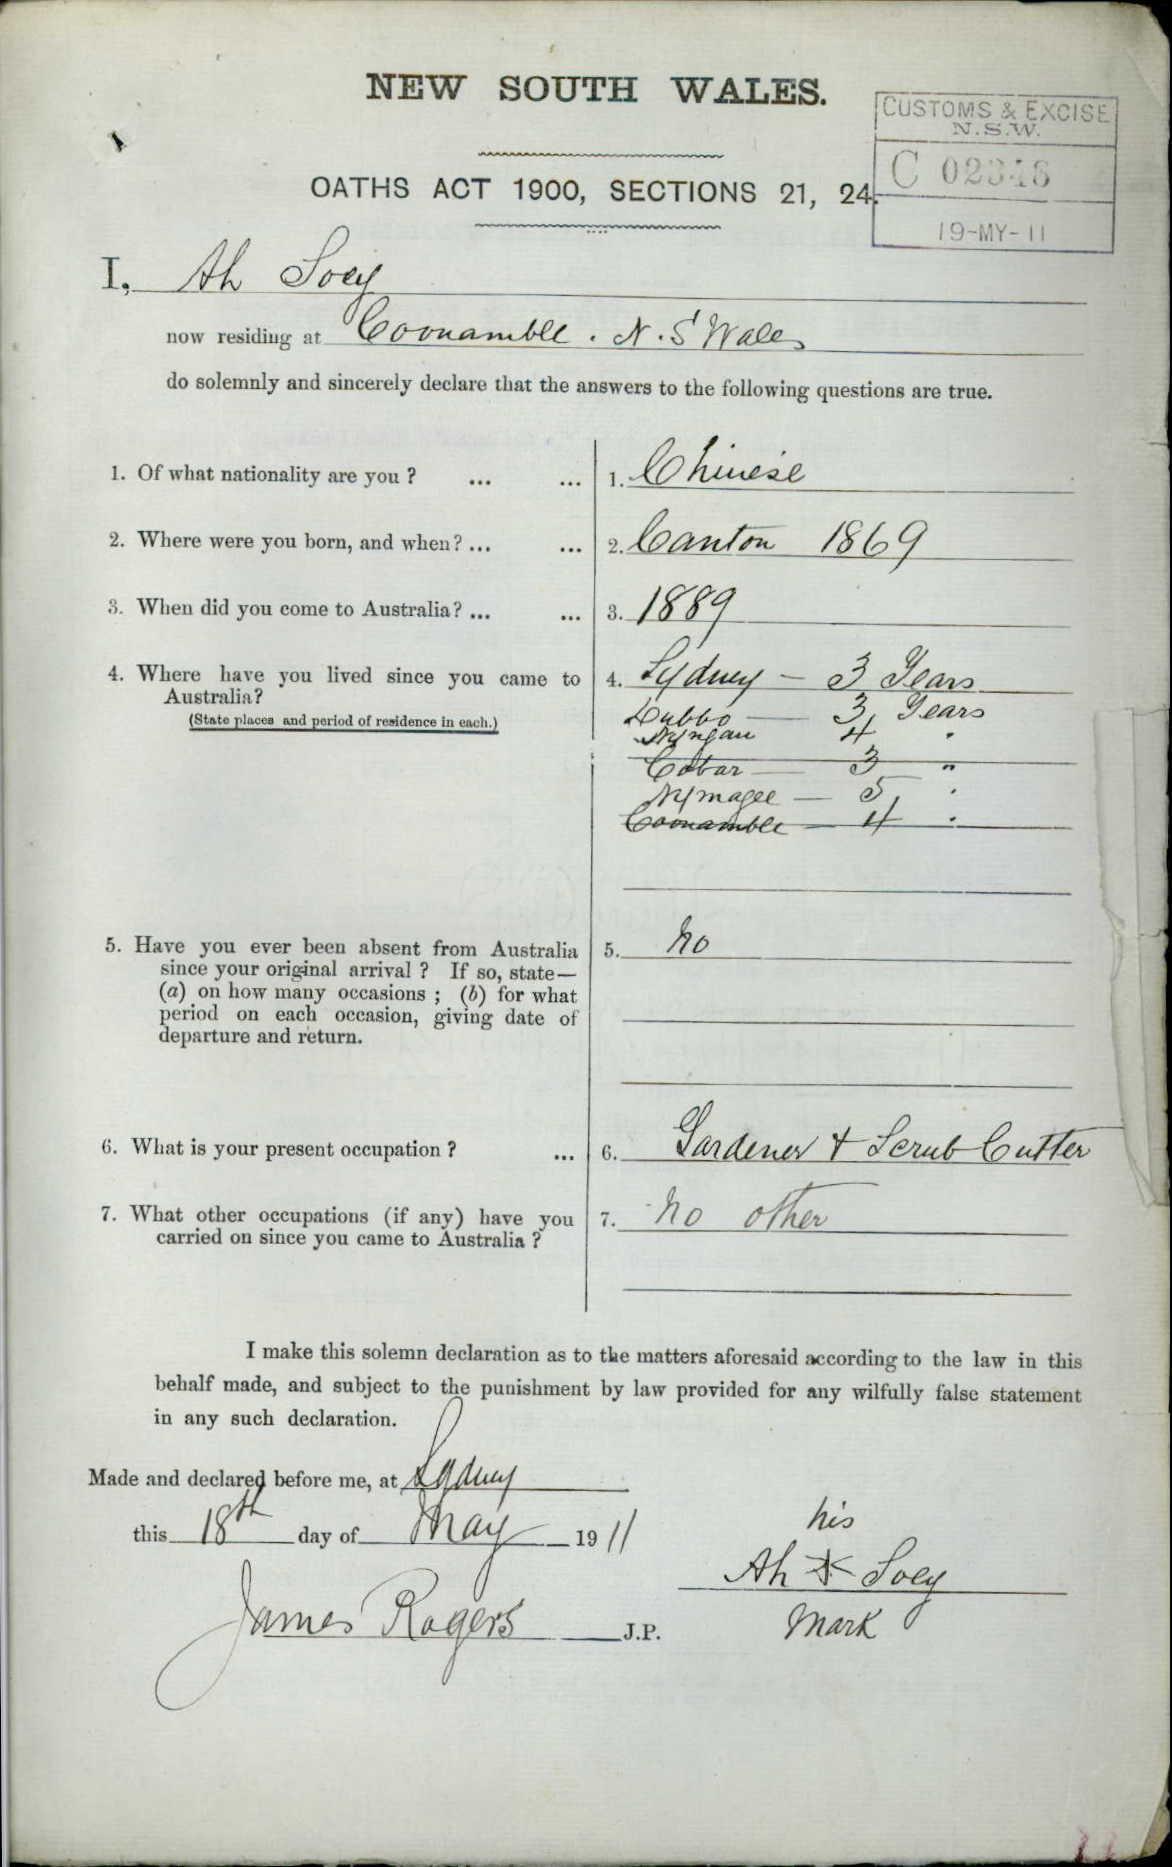 NEW SOUTH WALES.
CUSTOMS & EXCISE
N.S.W.
C 02348
19-MY-11
OATHS ACT 1900, SECTIONS 21, 24.
I, Ah Soey
now residing at Coonamble. N. S Wales
do solemnly and sincerely declare that the answers to the following questions are true.
1. Of what nationality are you? ... ... 1. Chinese
2. Where were you born, and when? ... ... 2. Canton 1869
3. When did you come to Australia? ... ... 3. 1889
4. Where have you lived since you came to 4. Sydney - 3 Years
Australia?
(State places and period of residence in each.)
Dubbo — 3 Years
Nyngan 4 "
Cobar — 3 "
Nymagee — 5 "
Coonamble — 4 "
5. Have you ever been absent from Australia 5. No
since your original arrival? If so, state—
(a) on how many occasions; (b) for what
period on each occasion, giving date of
departure and return.
6. What is your present occupation? ... 6. Gardener & Scrub Cutter
7. What other occupations (if any) have you 7. No other
carried on since you came to Australia?
I make this solemn declaration as to the matters aforesaid according to the law in this
behalf made, and subject to the punishment by law provided for any wilfully false statement
in any such declaration.
Made and declared before me, at Sydney
this 18th day of May 1911
his
Ah X Soey
mark
James Rogers J.P.